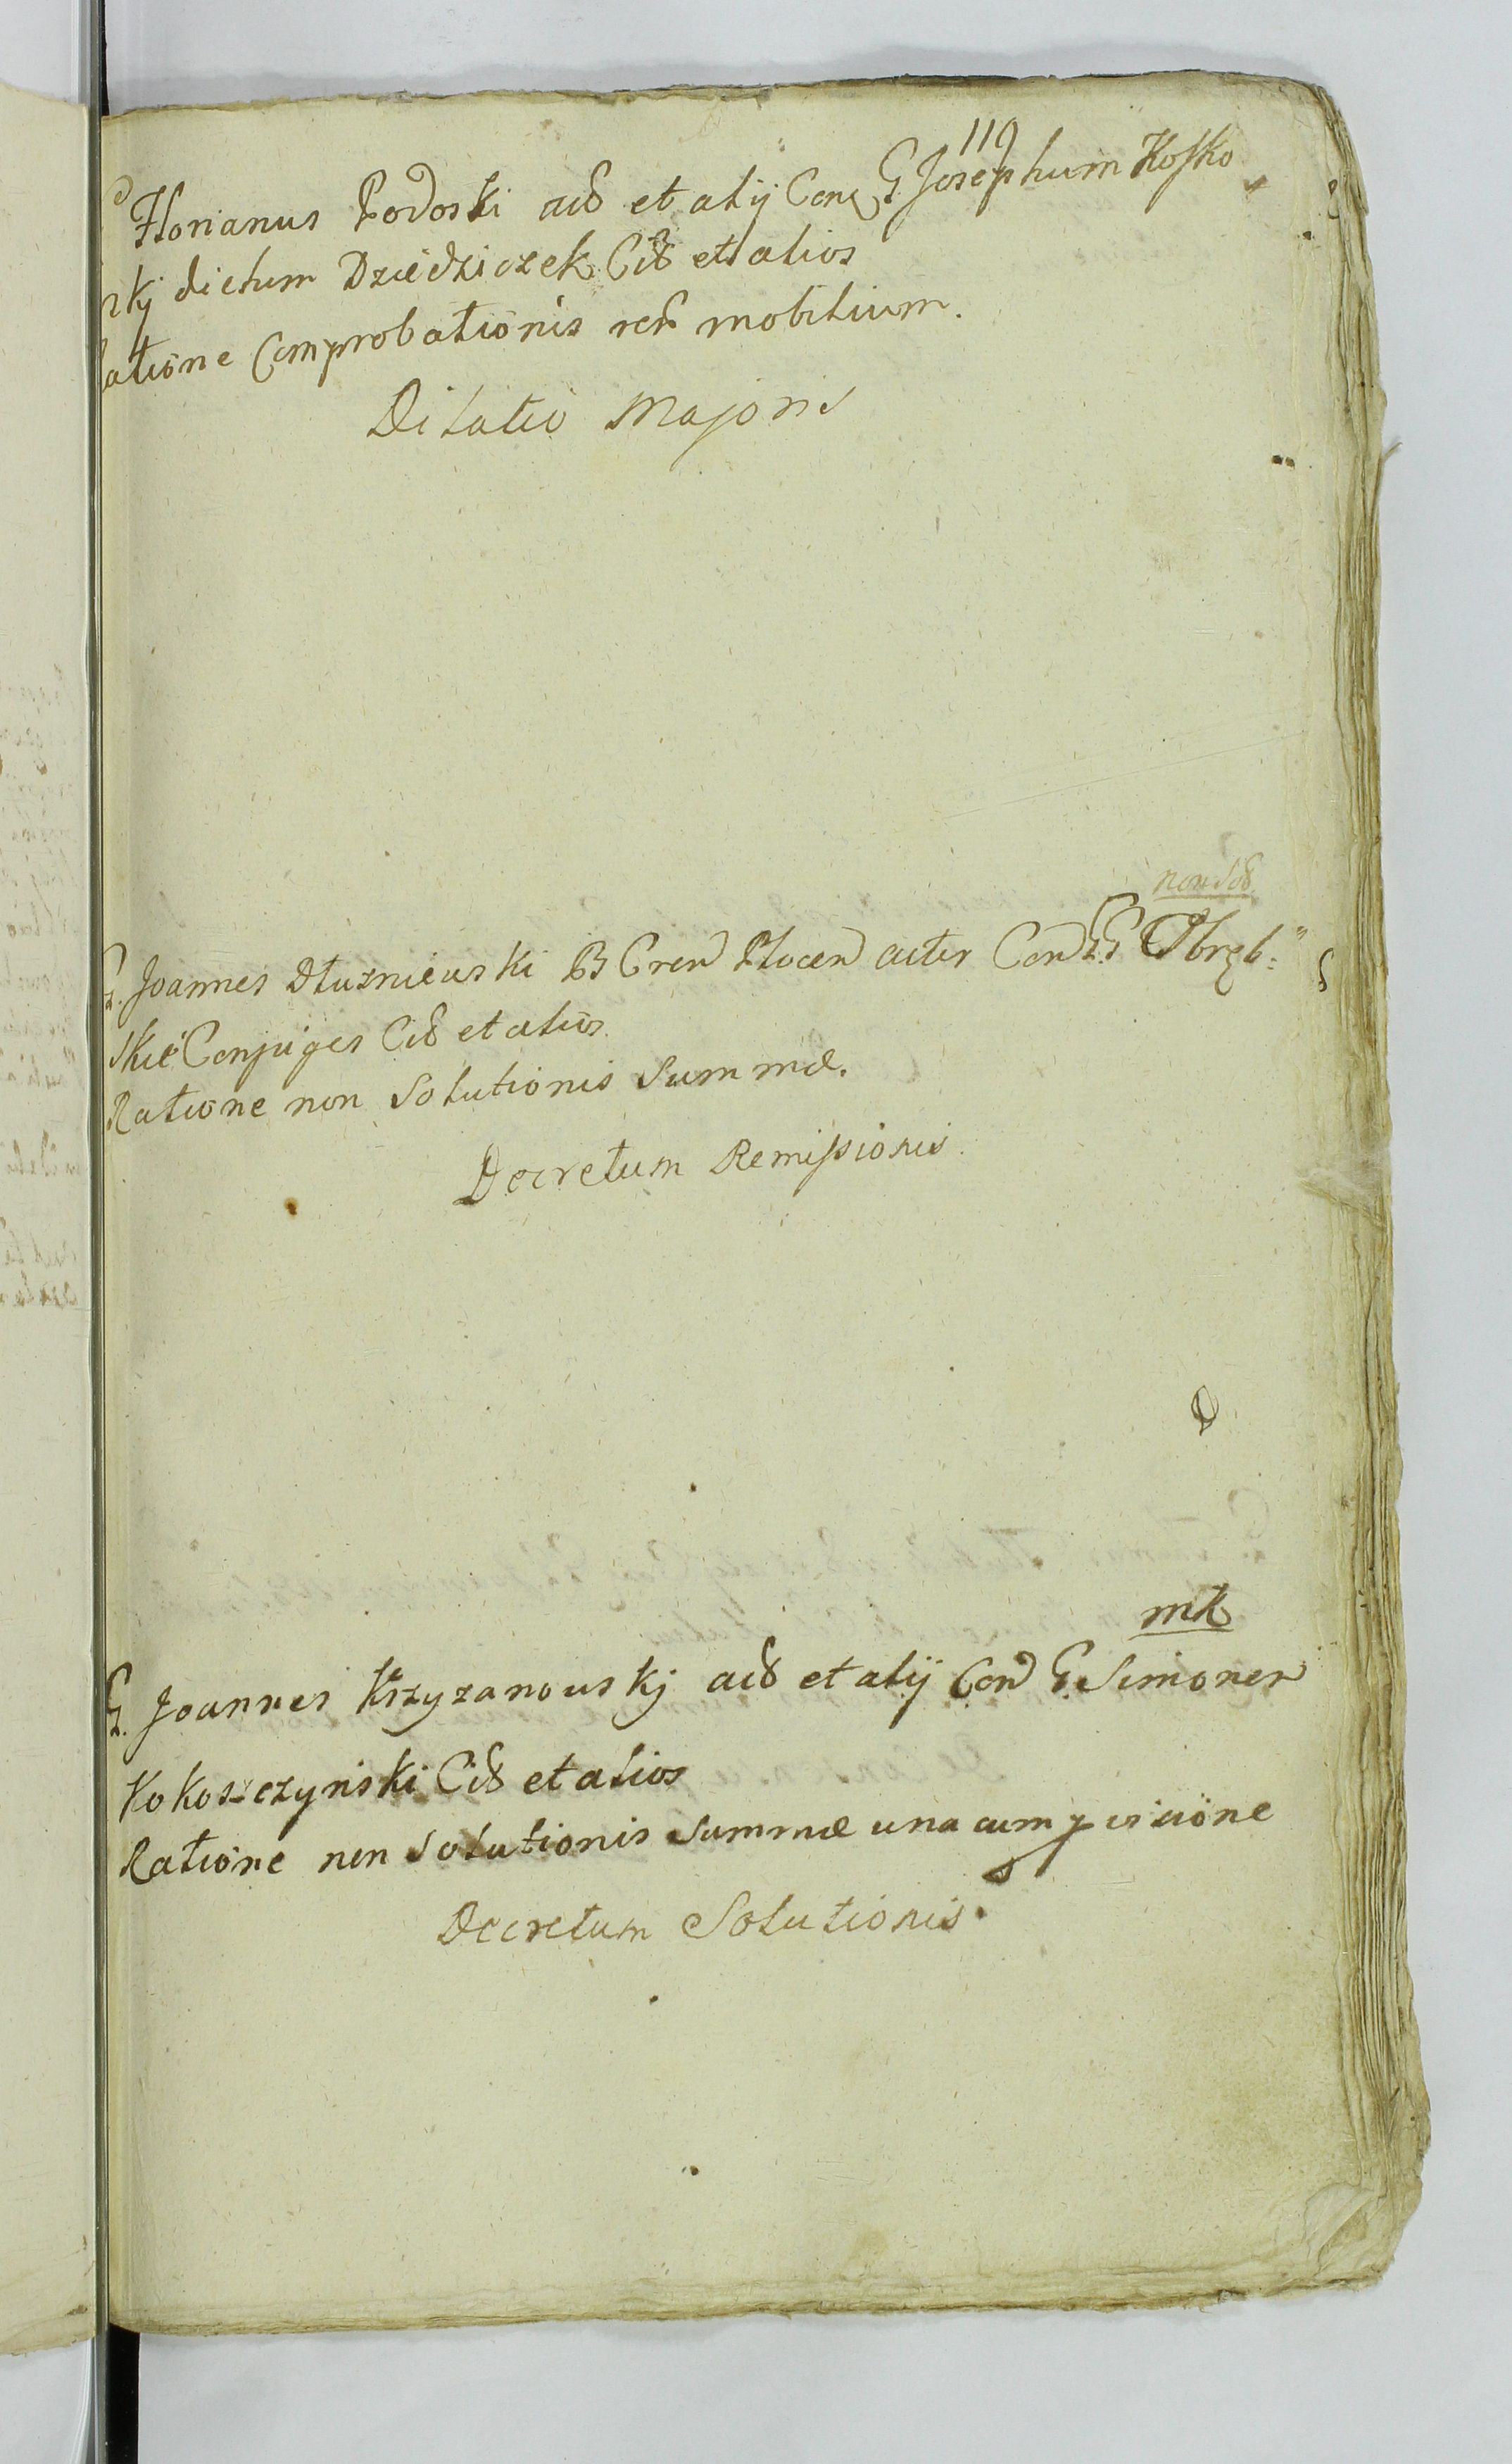 119
Florianus Podoski acto et alij Con G Josephum Kossko
skj dictum Dziedziczek Cit et alios
Ratione Comprobationis reru mobilium.
Dilatio Majoris
non sol
G. Joannes Dłuzniewski B Cren Plocen actor Con GG Obręb:
skie Conjuges Cit et alios
Ratione non Solutionis Summæ.
Decretum Remissionis.
mtt
G. Joannes Krzyzanowskj act et alij Con G. Simonem
Kokoszczynski Cit et alios
Ratione non Solutionis Summæ una cum pvisione
Decretum Solutionis